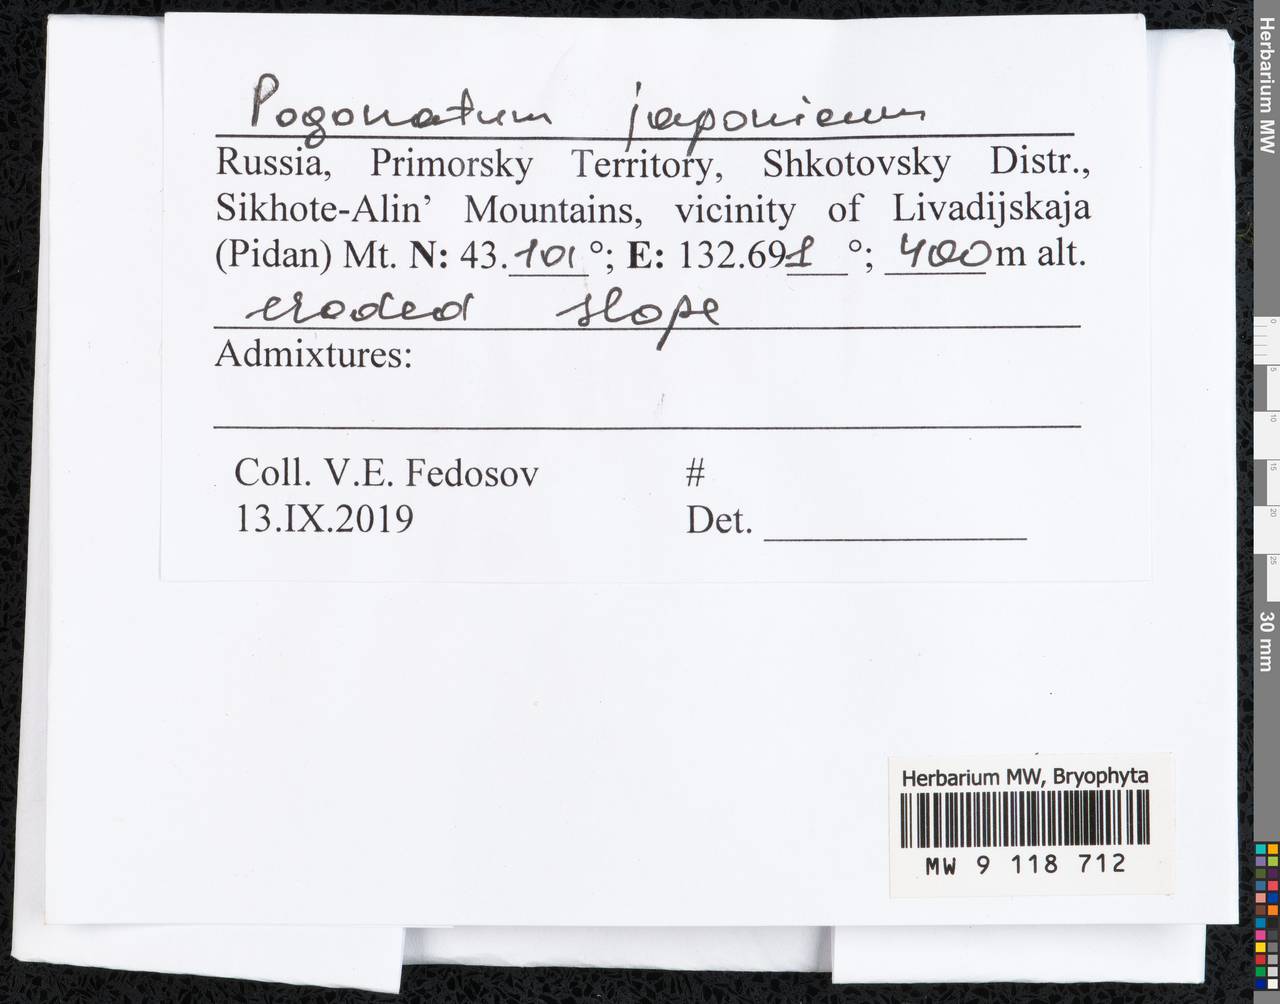 Pogonatum japonicum
Russia, Primorsky Territory, Shkotovsky Distr.,
Sikhote-Alin’ Mountains, vicinity of Livadijskaja
(Pidan) Mt. N: 43.101°; E: 132.691°; 400 m alt.
eroded slope
Admixtures:
Coll. V.E. Fedosov #
13.IX.2019 Det.
Herbarium MW, Bryophyta
MW 9 118 712
Herbarium MW
0
5
10
15
20
25
30 mm